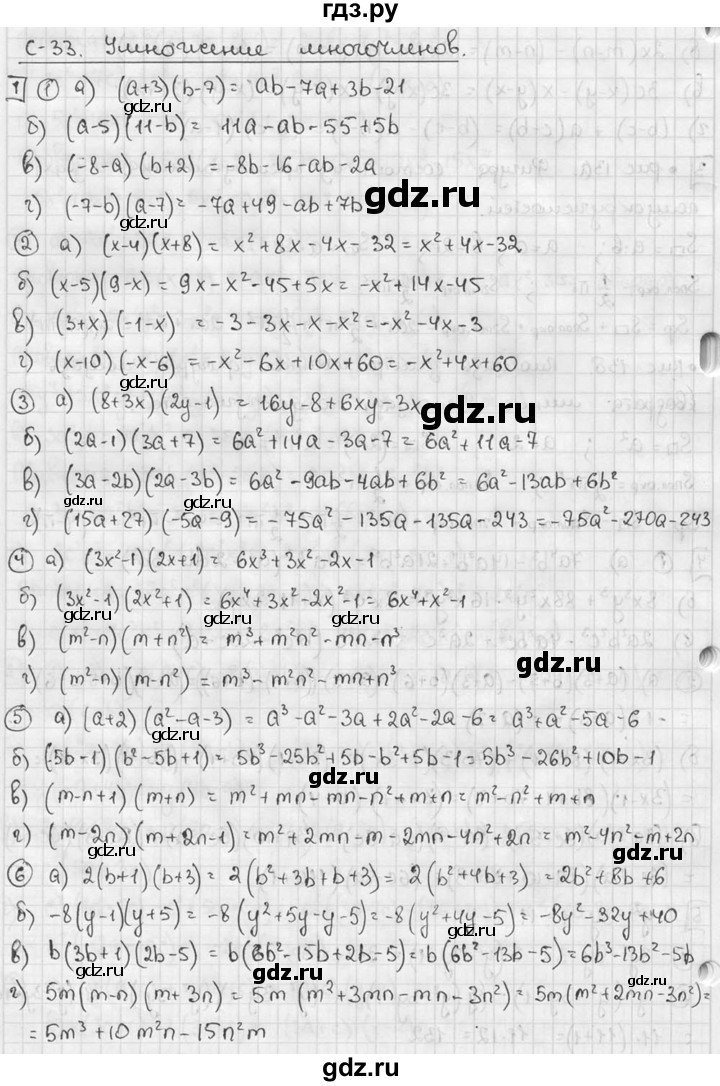 гдз.ру
С-33. Умножение многочленов.
1 ① а) (a+3)(b-7) = ab-7a+3b-21
gdz.ru
б) (a-5)(11-b) = 11a-ab-55+5b
в) (-8-a)(b+2) = -8b-16-ab-2a
gdz.ru
г) (-7-b)(a-7) = -7a+49-ab+7b
gdz.ru
② а) (x-4)(x+8) = x²+8x-4x-32 = x²+4x-32
б) (x-5)(9-x) = 9x-x²-45+5x = -x²+14x-45
gdz.ru
в) (3+x)(-1-x) = -3-3x-x-x² = -x²-4x-3
г) (x-10)(-x-6) = -x²-6x+10x+60 = -x²+4x+60
gdz.ru
③ а) (8+3x)(2y-1) = 16y-8+6xy-3x
gdz.ru
б) (2a-1)(3a+7) = 6a²+14a-3a-7 = 6a²+11a-7
в) (3a-2b)(2a-3b) = 6a²-9ab-4ab+6b² = 6a²-13ab+6b²
gdz.ru
gdz.ru
г) (15a+27)(-5a-9) = -75a²-135a-135a-243 = -75a²-270a-243
④ а) (3x²-1)(2x+1) = 6x³+3x²-2x-1
gdz.ru
б) (3x²-1)(2x²+1) = 6x⁴+3x²-2x²-1 = 6x⁴+x²-1
в) (m²-n)(m+n²) = m³+m²n²-mn-n³
gdz.ru
gdz.ru
г) (m²-n)(m-n²) = m³-m²n²-mn+n³
⑤ а) (a+2)(a²-a-3) = a³-a²-3a+2a²-2a-6 = a³+a²-5a-6
gdz.ru
б) (5b-1)(b²-5b+1) = 5b³-25b²+5b-b²+5b-1 = 5b³-26b²+10b-1
gdz.ru
в) (m-n+1)(m+n) = m²+mn-mn-n²+m+n = m²-n²+m+n
г) (m-2n)(m+2n-1) = m²+2mn-m-2mn-4n²+2n = m²-4n²-m+2n
gdz.ru
gdz.ru
⑥ а) 2(b+1)(b+3) = 2(b²+3b+b+3) = 2(b²+4b+3) = 2b²+8b+6
gdz.ru
б) -8(y-1)(y+5) = -8(y²+5y-y-5) = -8(y²+4y-5) = -8y²-32y+40
gdz.ru
в) b(3b+1)(2b-5) = b(6b²-15b+2b-5) = b(6b²-13b-5) = 6b³-13b²-5b
gdz.ru
г) 5m(m-n)(m+3n) = 5m(m²+3mn-mn-3n²) = 5m(m²+2mn-3n²) =
gdz.ru
= 5m³+10m²n-15n²m
gdz.ru